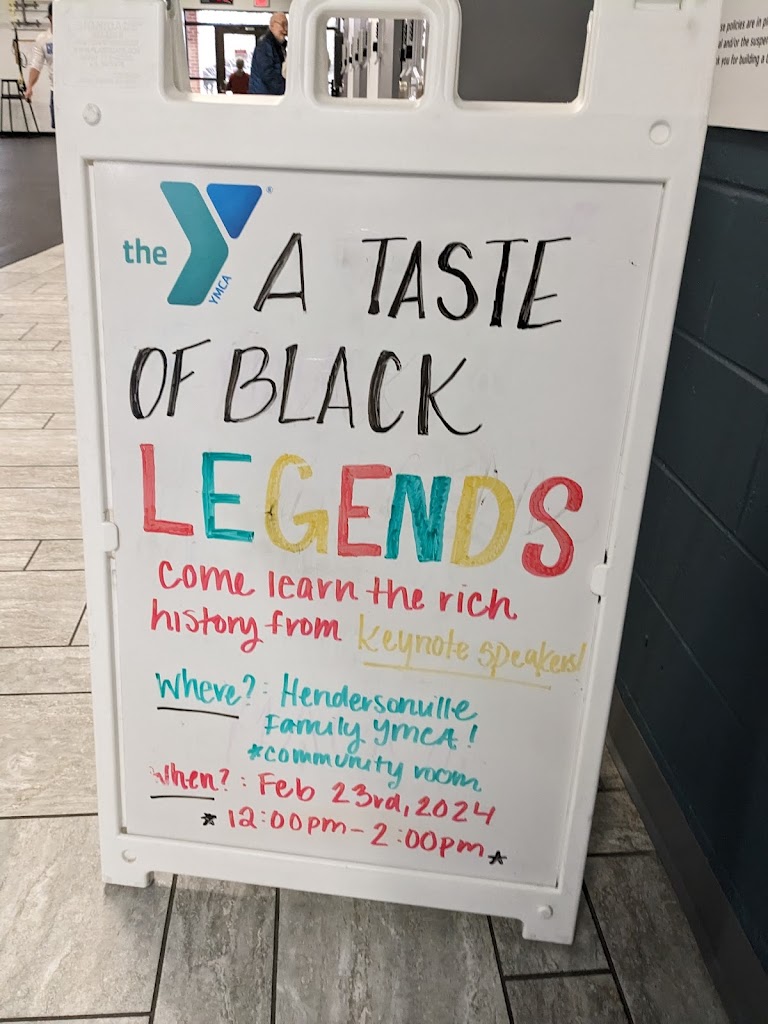 the
YMCA
®
A TASTE
OF BLACK
LEGENDS
come learn the rich
history from keynote speakers!
Where?: Hendersonville
Family YMCA!
*community room
When?: Feb 23rd, 2024
*12:00pm-2:00pm*
se policies are in p
al and/or the suspen
k you for building a